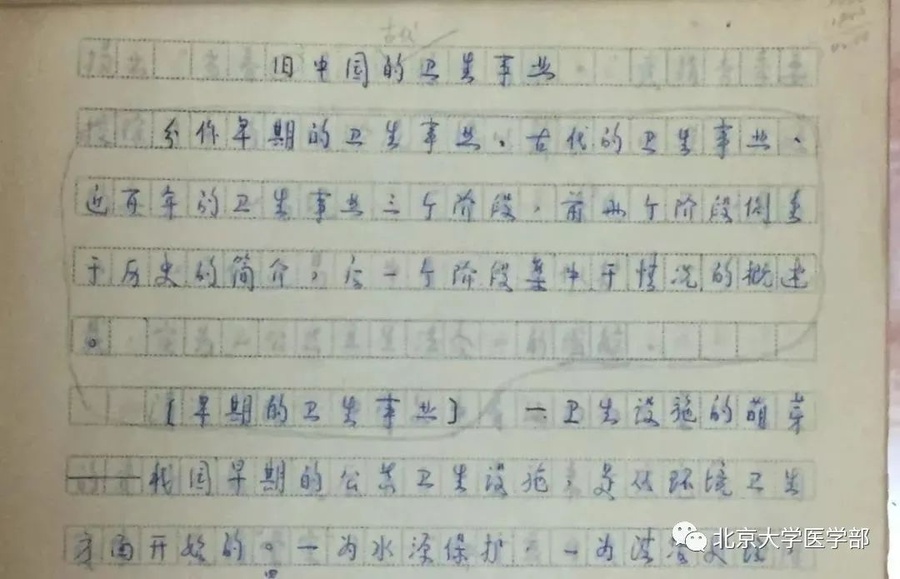 古代
旧中国的卫生事业
分作早期的卫生事业、古代的卫生事业、
近百年的卫生事业三个阶段，前两个阶段侧重
于历史的简介，后一个阶段集中于情况的概述
。
［早期的卫生事业］ 一 卫生设施的萌芽
我国早期的公共卫生设施，是从环境卫生
方面开始的。一为水源保护，一为
北京大学医学部